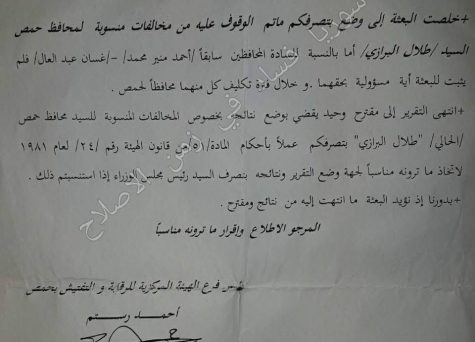 +خلصت البعثة إلى وضع بتصرفكم ماتم الوقوف عليه من مخالفات منسوبة لمحافظ حمص
السيد /طلال البرازي/ أما بالنسبة للسادة المحافظين سابقاً /أحمد منير محمد/ -/غسان عبد العال/ فلم
يثبت للبعثة أية مسؤولية بحقهما .و خلال فترة تكليف كل منهما محافظاً لحمص .
+ انتهى التقرير إلى مقترح وحيد يقضي بوضع نتائجه بخصوص المخالفات المنسوبة للسيد محافظ حمص
/الحالي/ "طلال البرازي" بتصرفكم عملاً بأحكام المادة/٥١/ من قانون الهيئة رقم /٢٤/ لعام ١٩٨١
لاتخاذ ما ترونه مناسباً لجهة وضع التقرير ونتائجه بتصرف السيد رئيس مجلس الوزراء إذا استنسبتم ذلك .
+بدورنا إذ نؤيد البعثة ما انتهت إليه من نتائج ومقترح .
المرجو الاطلاع وإقرار ما ترونه مناسباً
رئيس فرع الهيئة المركزية للرقابة و التفتيش بحمص
أحمد رستم